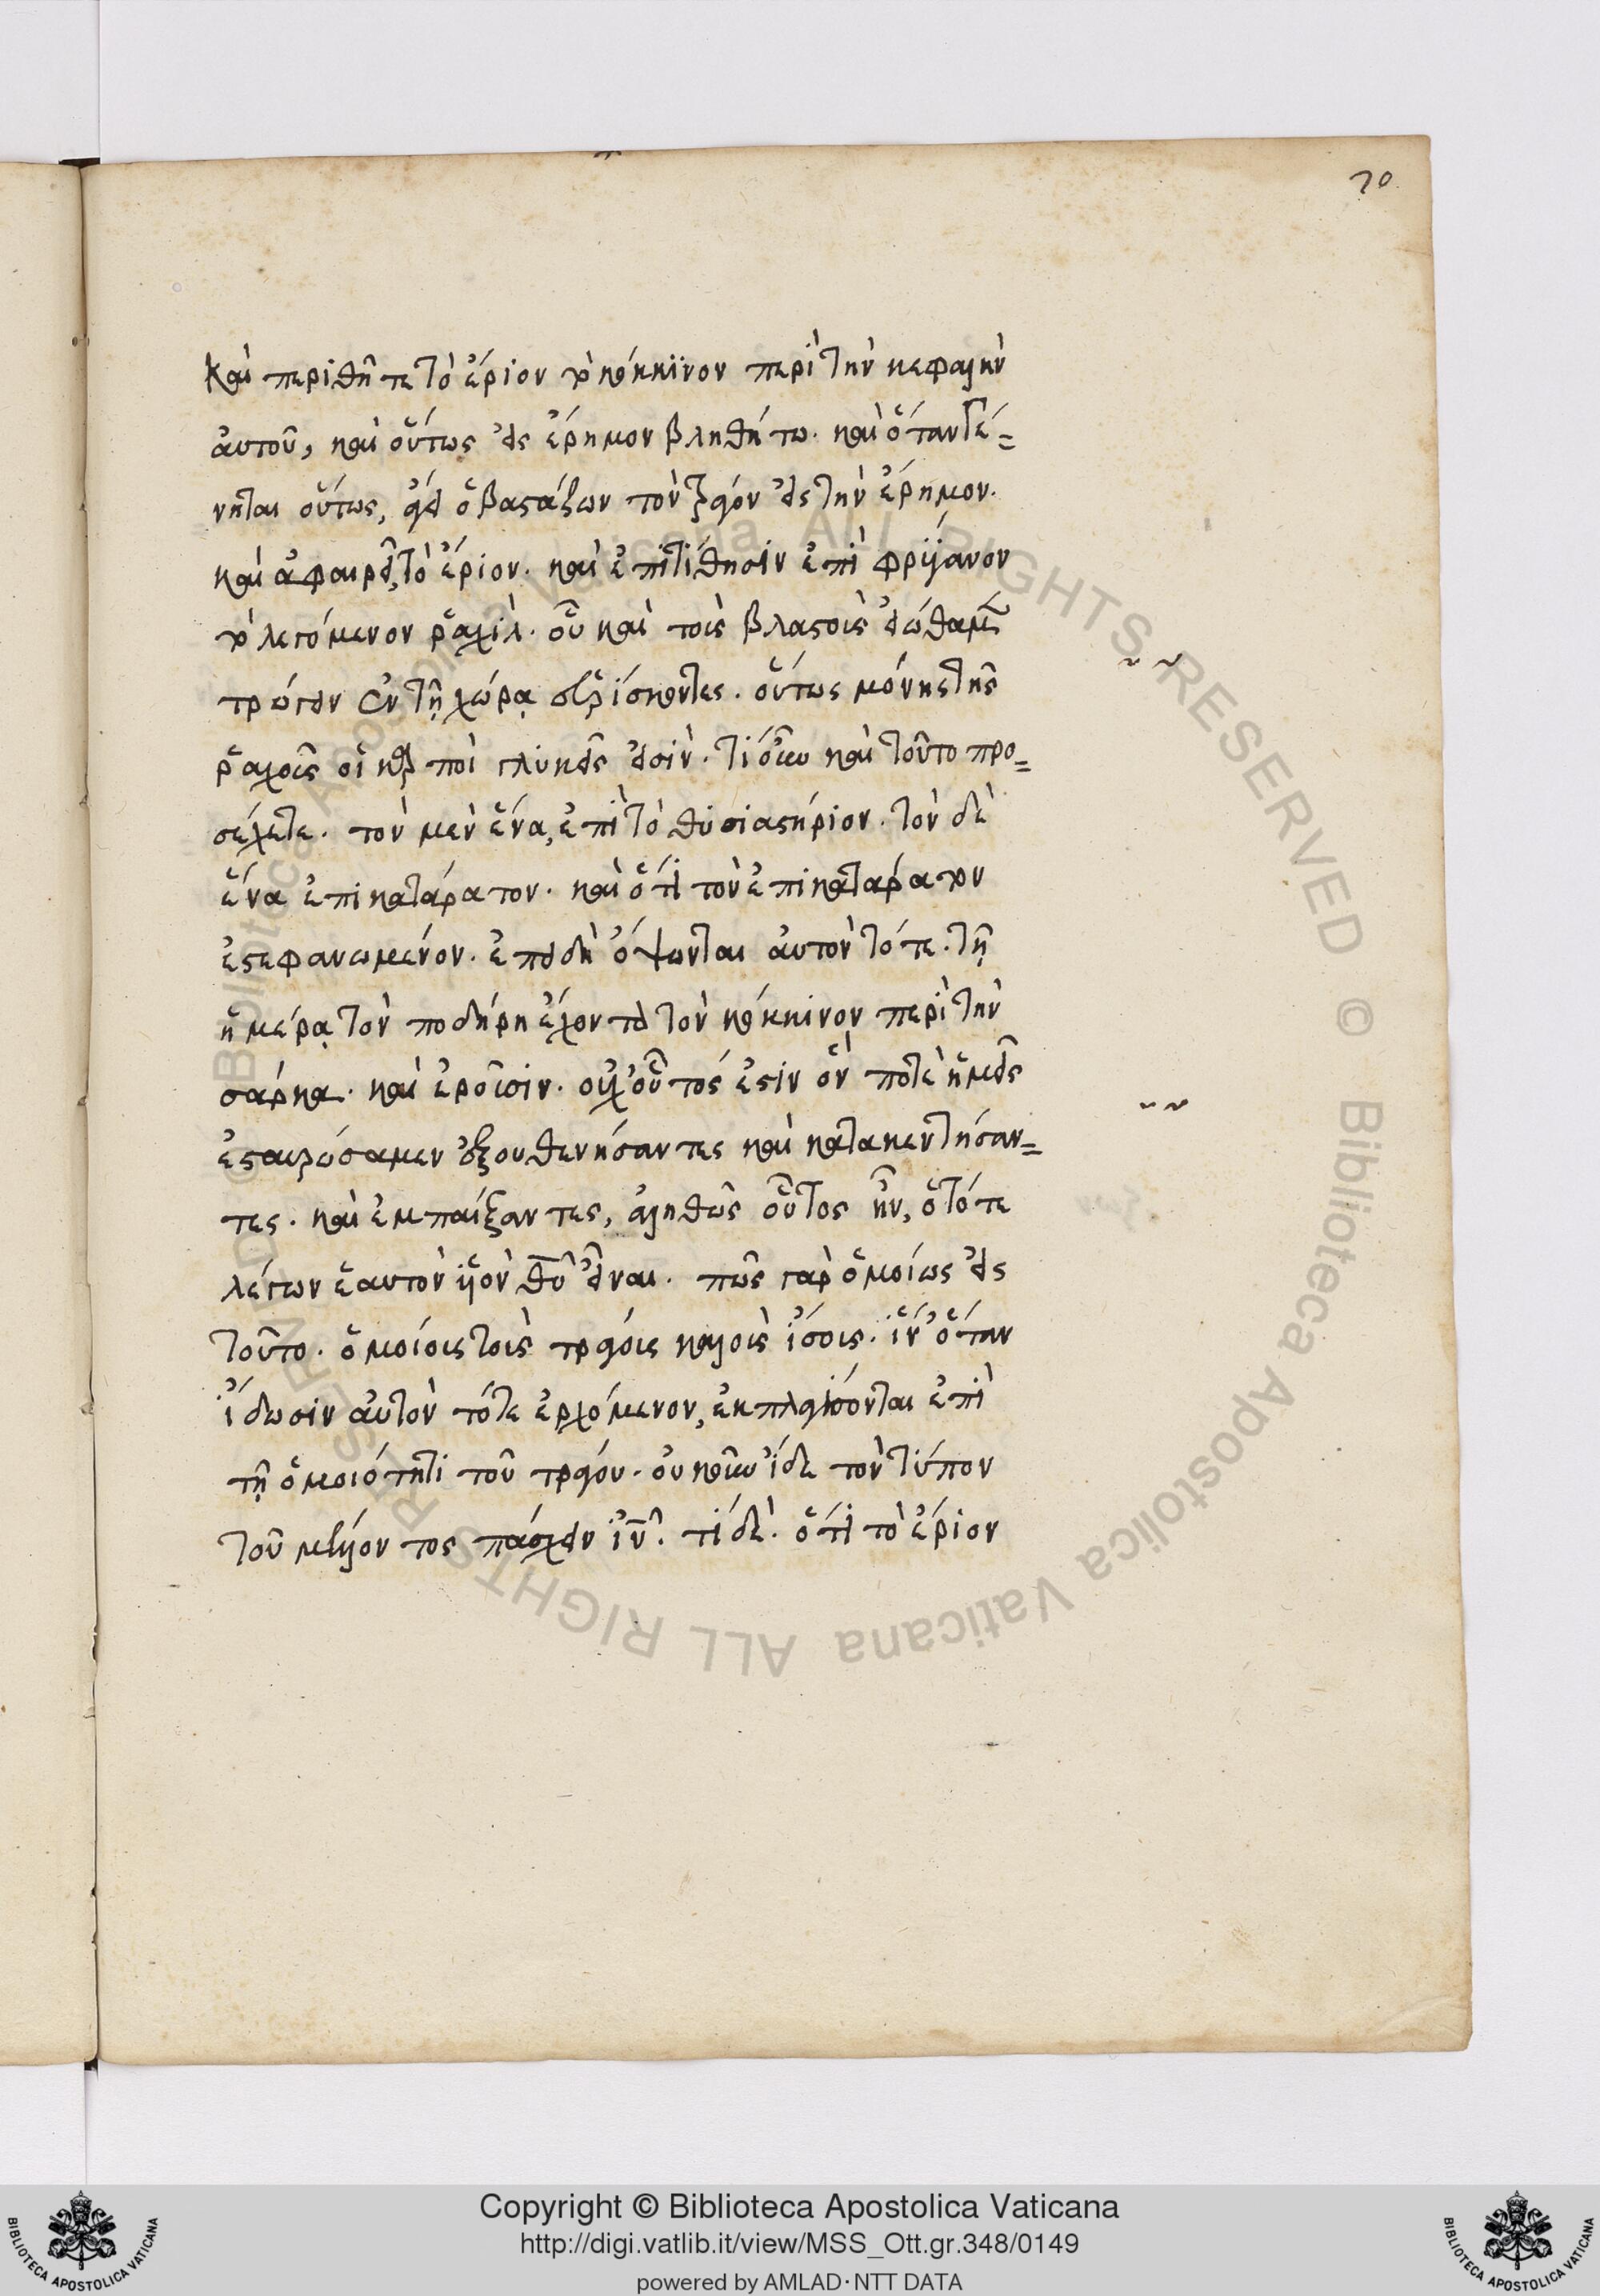 70
καὶ περιθῆτε τὸ ἔριον τὸ κόκκινον περὶ τὴν κεφαλὴν
ἀυτοῦ, καὶ οὕτως εἰς ἔρημον βληθήτω. καὶ ὅταν γέ=
νηται οὕτως, ἄγει ὁ βαστάζων τὸν τράγον εἰς τὴν ἔρημον.
καὶ ἀφαιρεῖ, τὸ ἔριον. καὶ ἐπιτίθησιν ἐπὶ φρύγανον
τὸ λεγόμενον ῥαχὶλ. οὗ καὶ τοὺς βλαστοὺς εἰώθαμεν
τρώγειν ἐν τῇ χώρᾳ εὑρίσκοντες. οὕτως μόνης τῆς
ῥαχοῦς οἱ καρποὶ γλυκεῖς εἰσὶν. τί οὖν καὶ τοῦτο προ=
σέχετε. τὸν μὲν ἕνα, ἐπὶ τὸ θυσιαστήριον. τὸν δὲ
ἕνα ἐπικατάρατον. καὶ ὅτι τὸν ἐπικατάρατον
ἐστεφανωμένον. ἐπειδὴ ὄψονται ἀυτὸν τότε. τῇ
ἡμέρᾳ τὸν ποδήρη ἔχοντα τὸν κόκκινον περὶ τὴν
σάρκα. καὶ ἐροῦσιν. οὐχ οὗτός ἐστιν ὃν ποτὲ ἡμεῖς
ἐσταυρώσαμεν ἐξουθενήσαντες καὶ κατακεντήσαν=
τες. καὶ ἐμπαίξαντες, ἀληθῶς οὗτος ἦν, ὁ τότε
λέγων ἑαυτὸν υἱὸν θῦ εἶναι. πῶς γὰρ ὁμοίως εἰς
τοῦτο. ὁμοίους τοὺς τράγους καλοὺς ἴσους. ἵν' ὅταν
ἴδωσιν ἀυτὸν τότε ἐρχόμενον, ἐκπλαγήσονται ἐπὶ
τῇ ὁμοιότητι τοῦ τράγου. οὐκοῦν ἴδε τὸν τύπον
τοῦ μέλλοντος πάσχειν ἰῦ. τί δὲ. ὅτι τὸ ἔριον
Copyright © Biblioteca Apostolica Vaticana
http://digi.vatlib.it/view/MSS_Ott.gr.348/0149
powered by AMLAD·NTT DATA